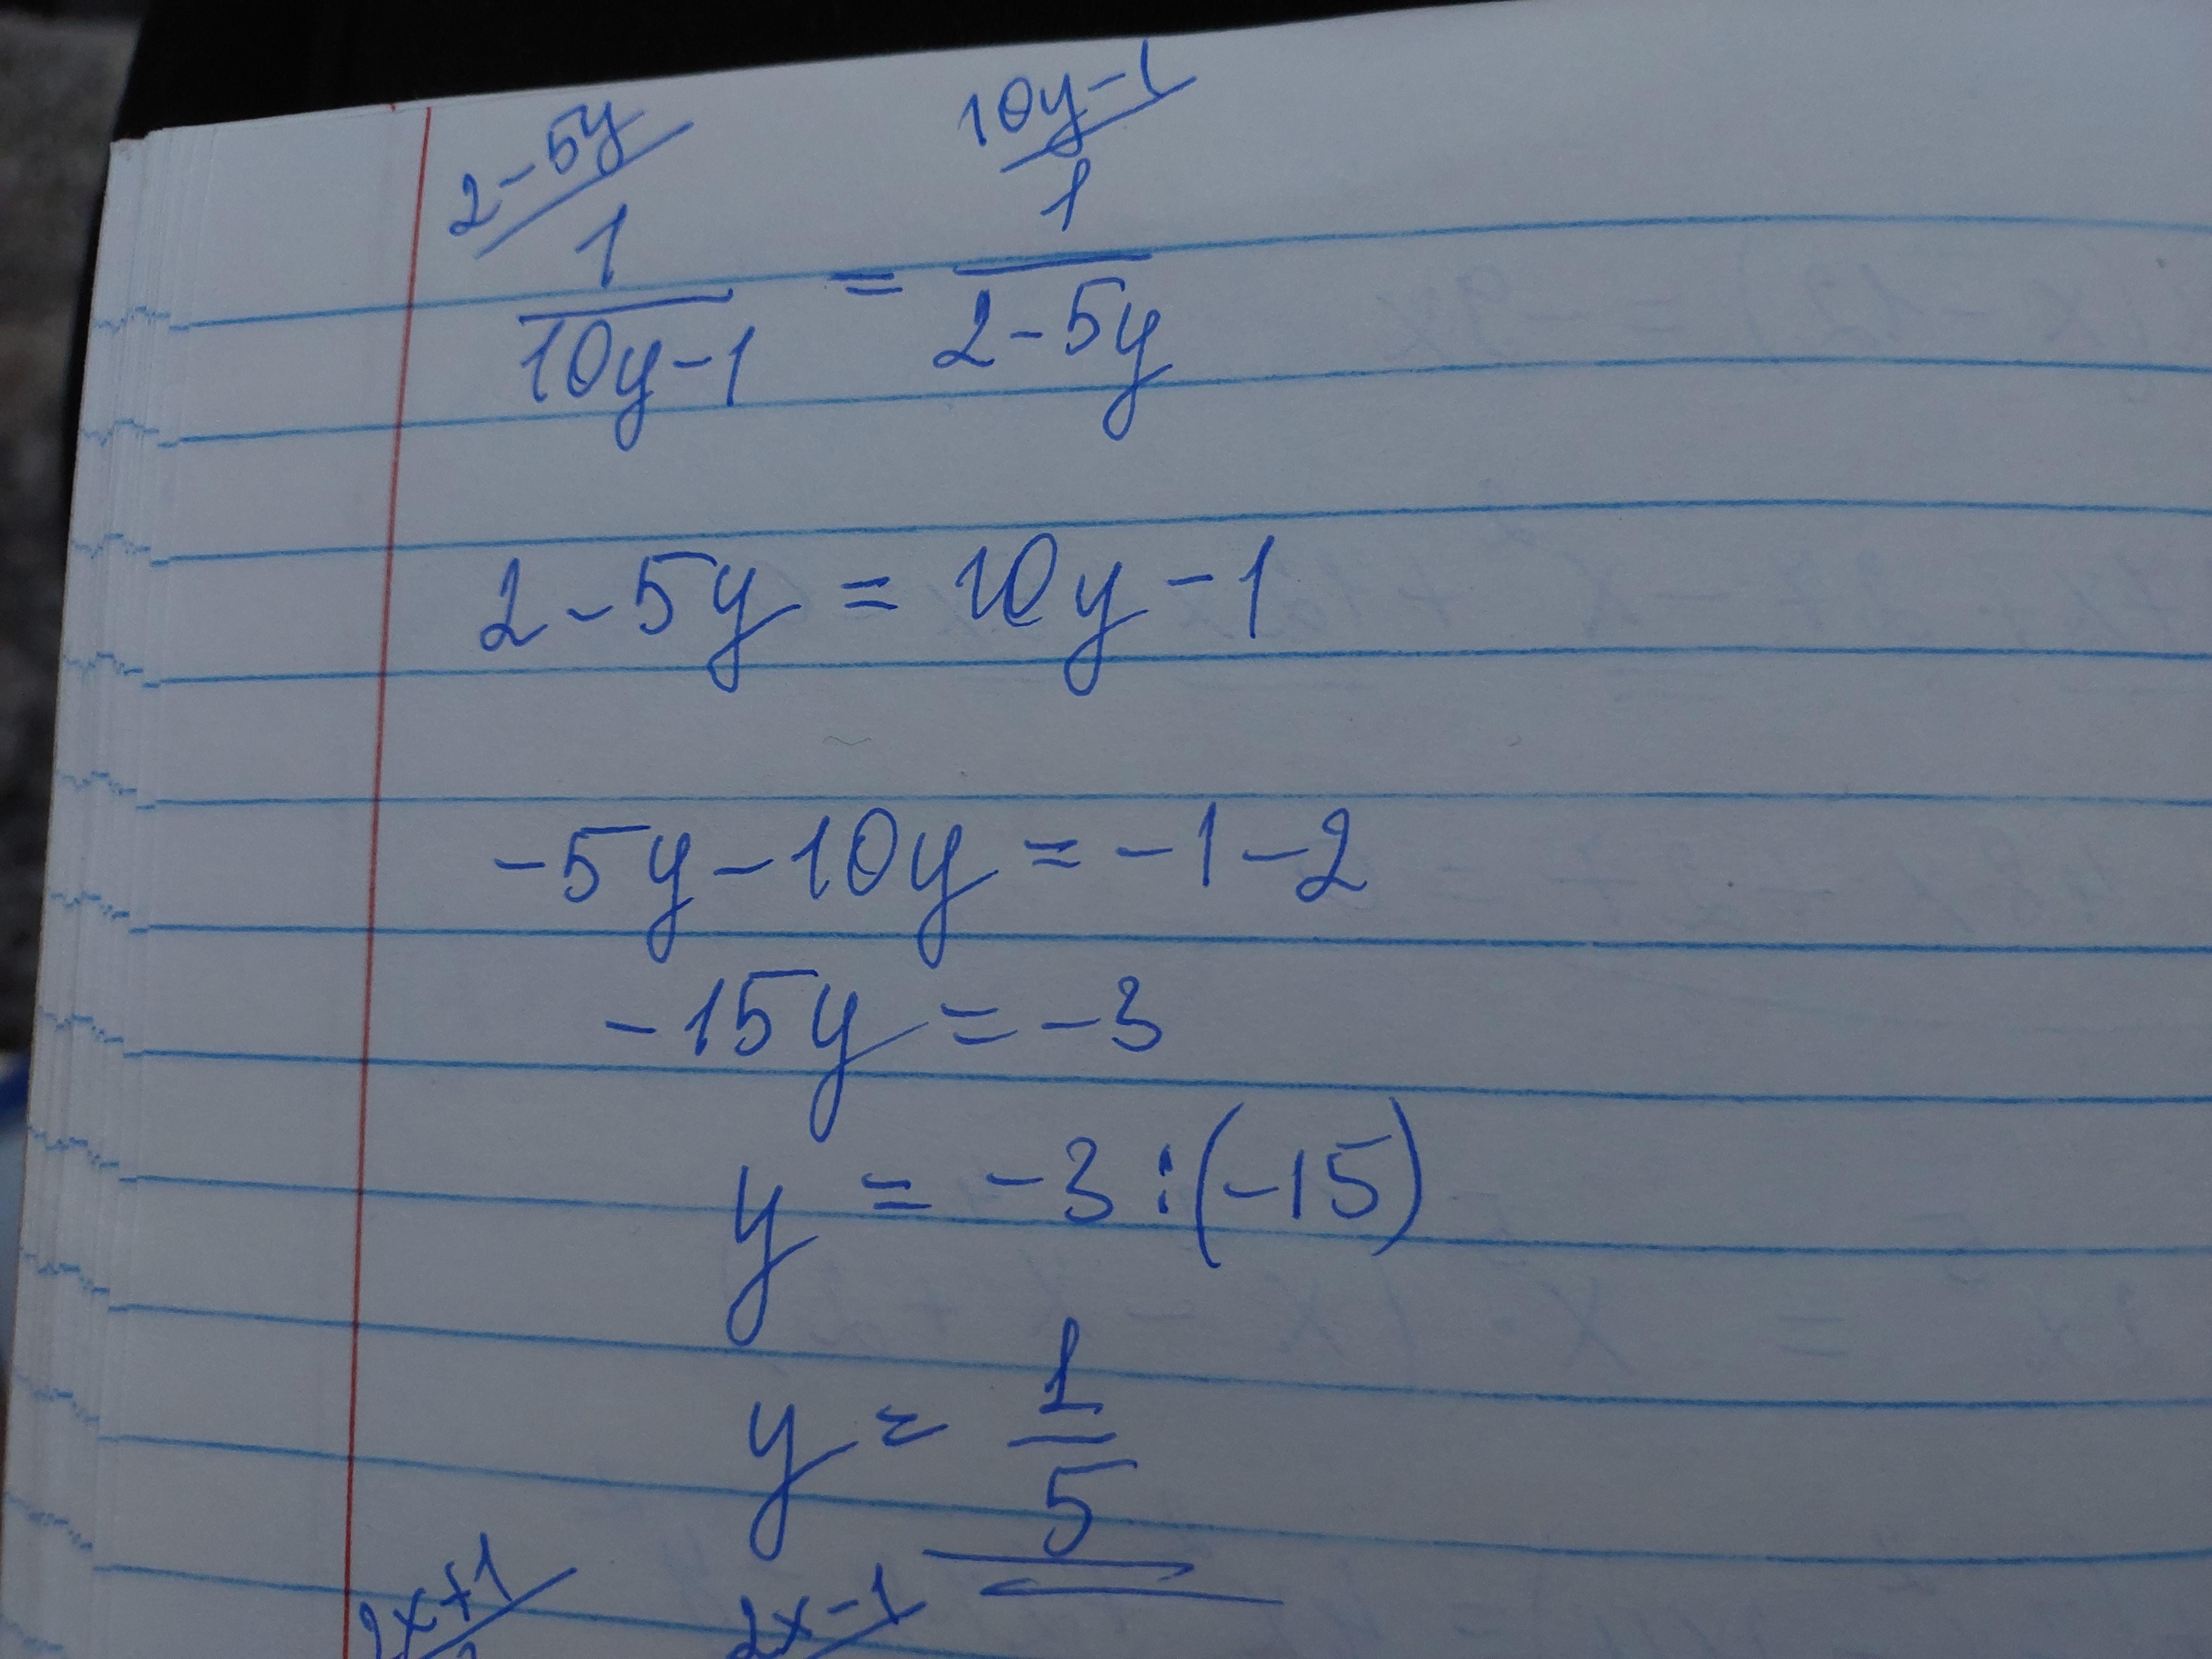 2-5y 10y-1
1/(10y-1) = 1/(2-5y)
2-5y = 10y-1
-5y-10y = -1-2
-15y = -3
y = -3:(-15)
y = 1/5
2x+1 2x-1